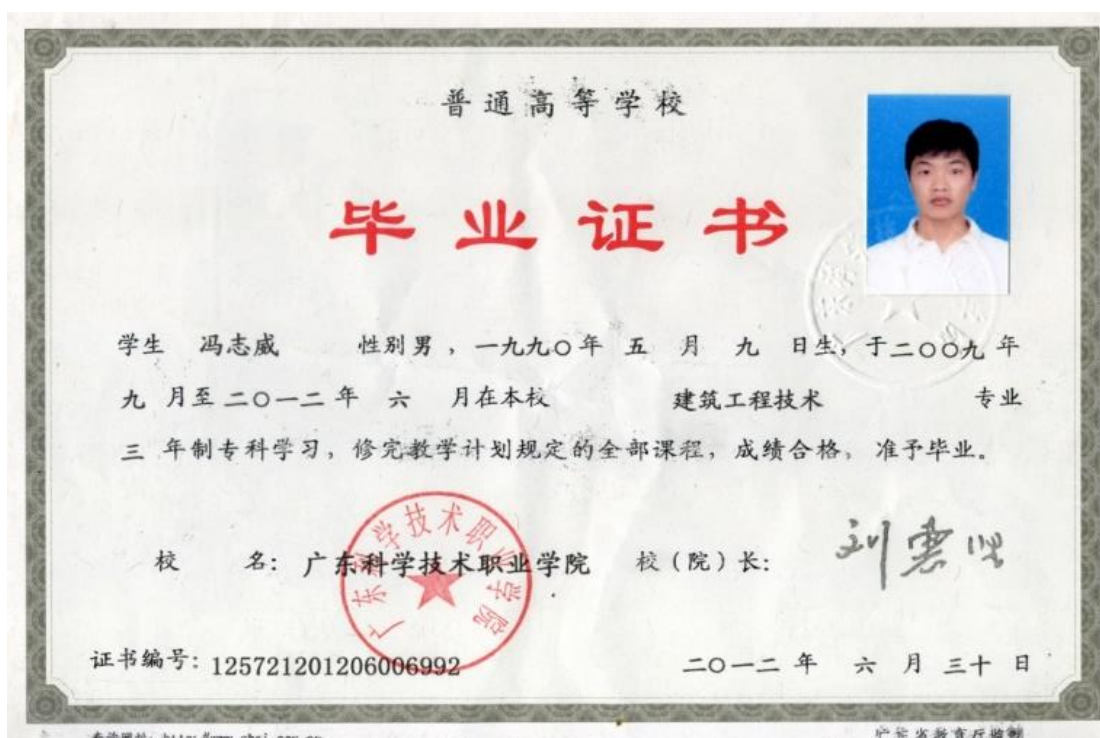 普通高等学校
毕业证书
学生 冯志威 性别男，一九九〇年 五 月 九 日生，于二〇〇九 年
九 月至二〇一二年 六 月在本校 建筑工程技术 专业
三 年制专科学习，修完教学计划规定的全部课程，成绩合格，准予毕业。
校 名：广东科学技术职业学院 校（院）长：
广东科学技术职业学院
证书编号：125721201206006992 二〇一二 年 六 月 三十 日
广东省教育厅监制